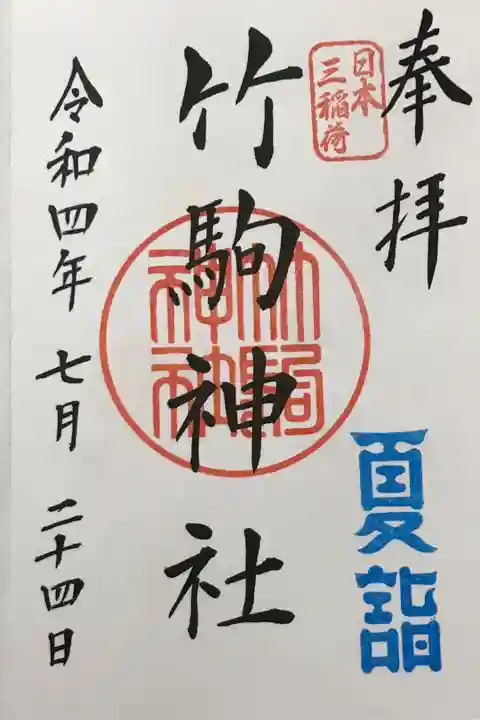 奉拝
夏詣
日本
三稲荷
竹駒神社
竹駒
神社
令和四年 七月 二十四日